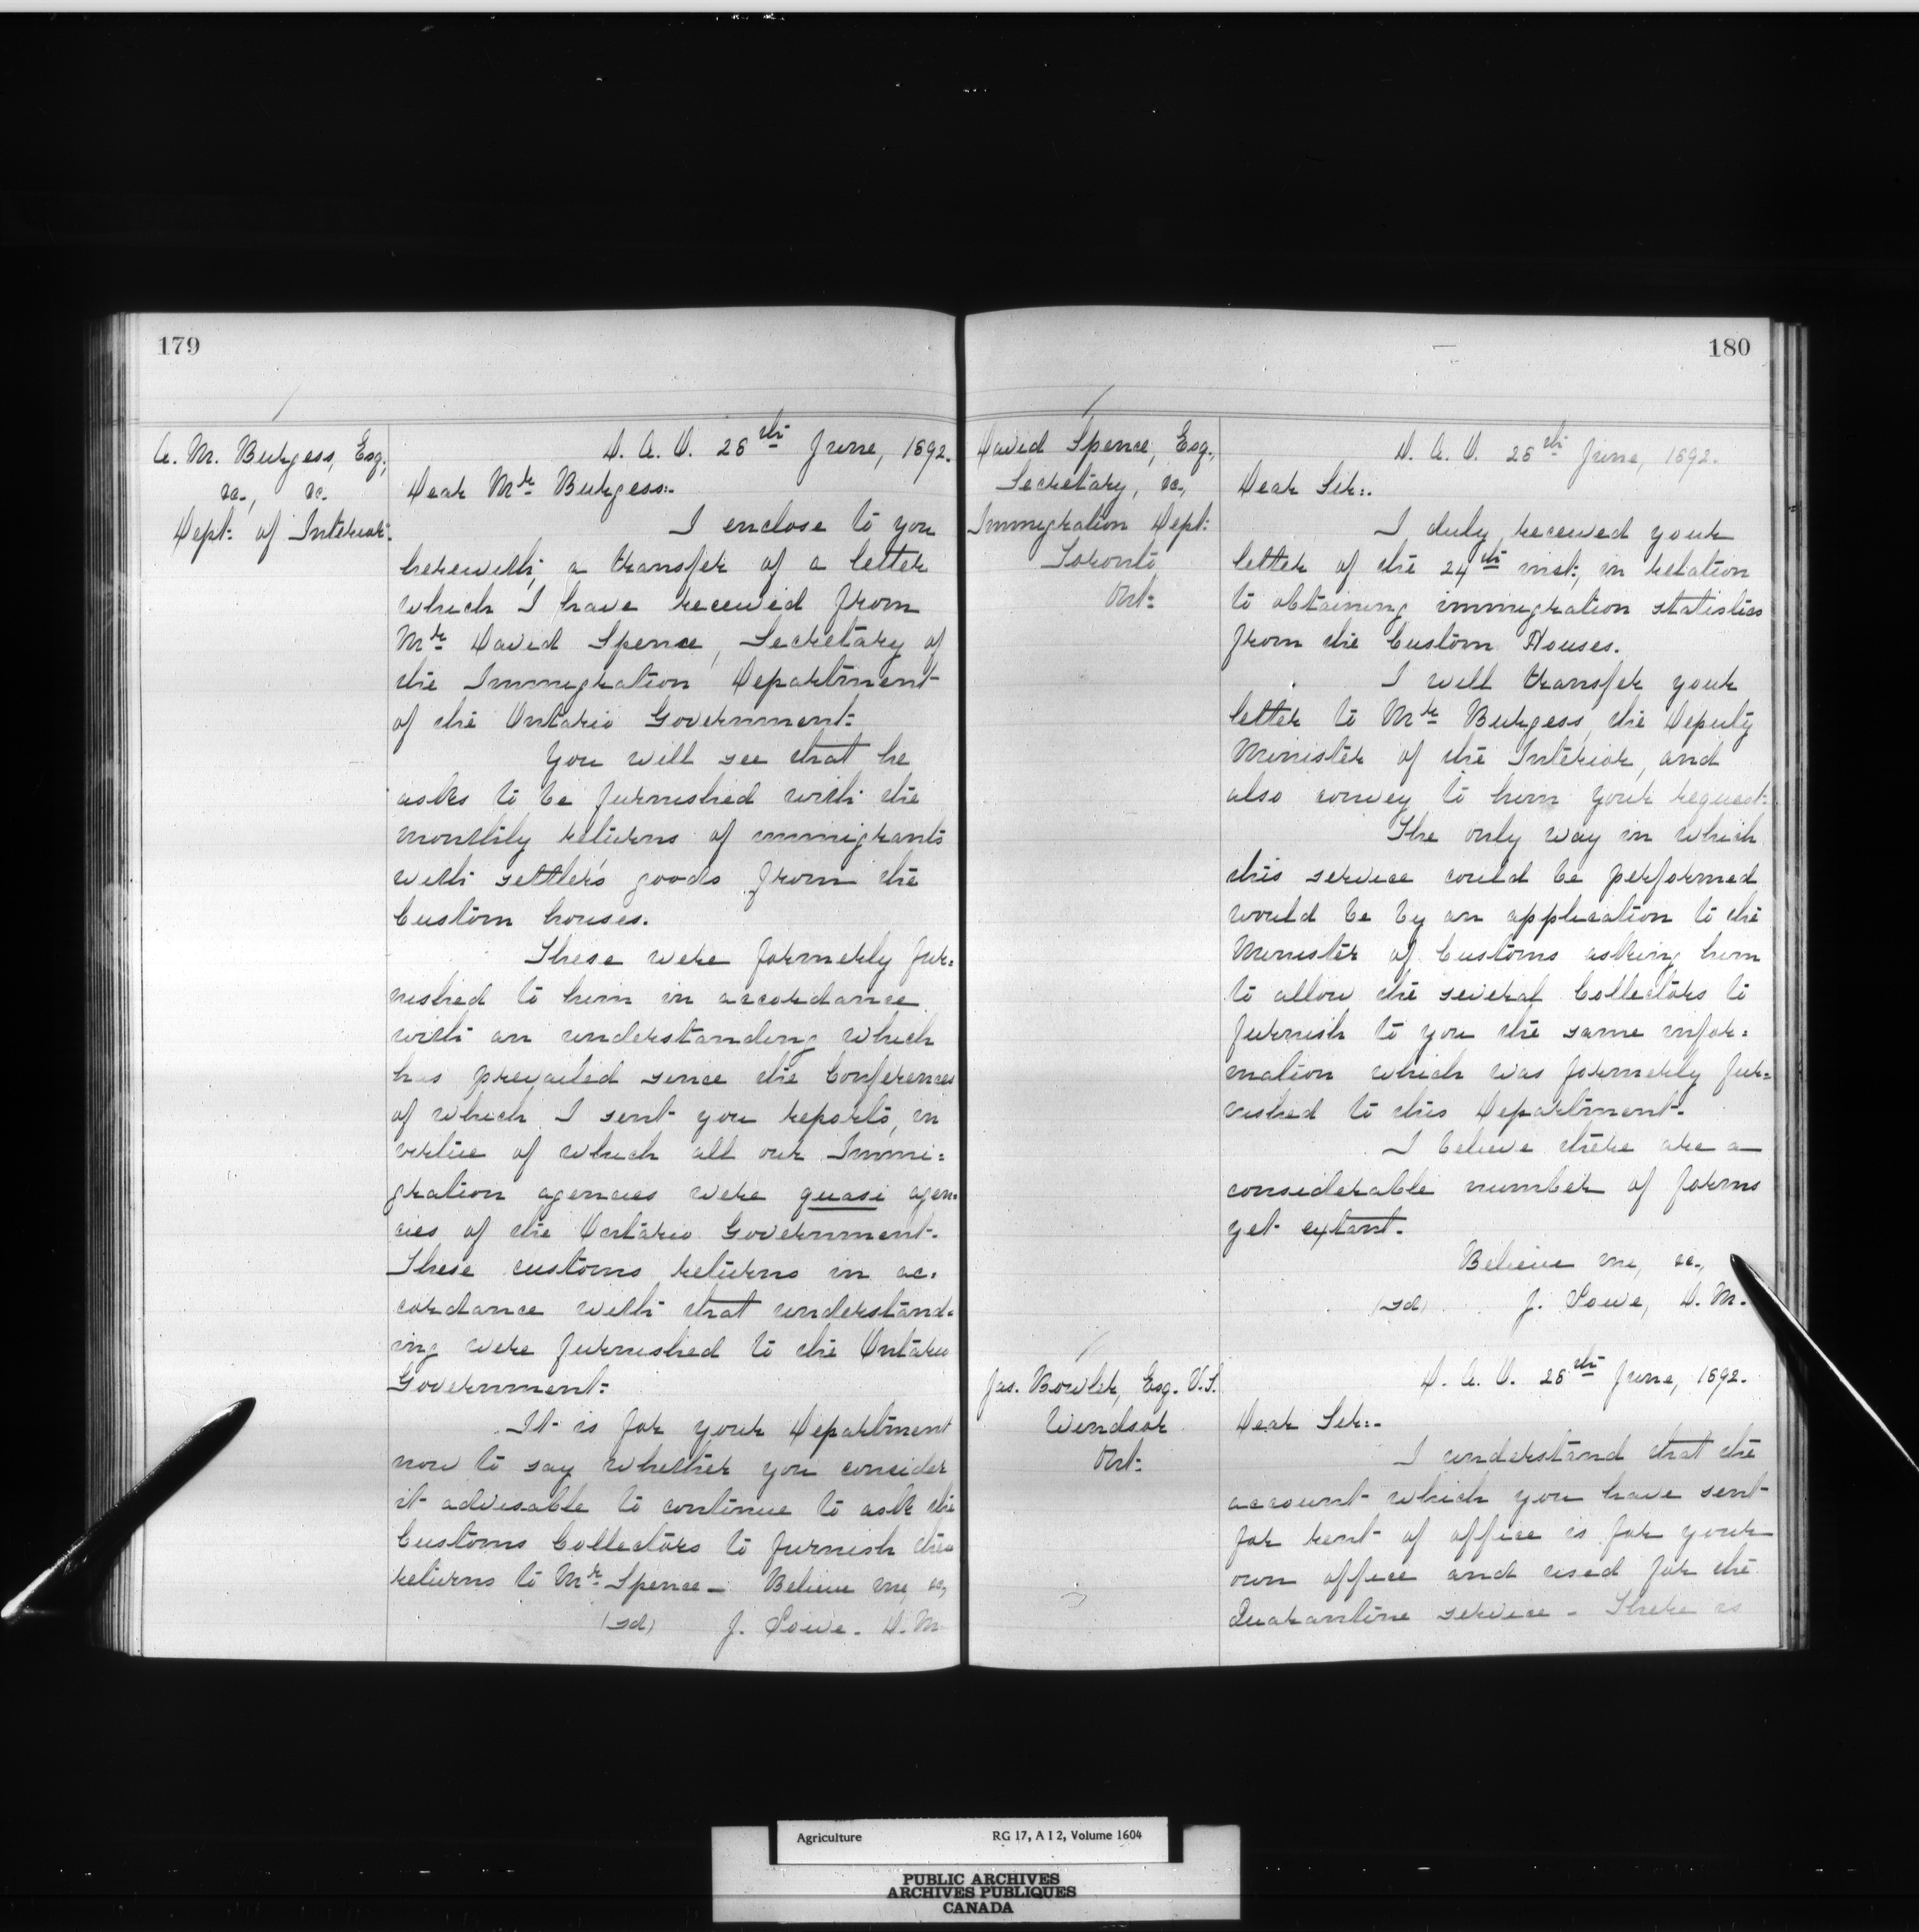 179
A. M. Burgess, Esq.,
&c., &c.
Dept: of Interior.
D. A. O. 28th June, 1892.
Dear Mr. Burgess:-
I enclose to you
herewith, a transfer of a letter
which I have received from
Mr. David Spence, Secretary of
the Immigration Department
of the Ontario Government.
You will see that he
asks to be furnished with the
monthly returns of immigrants
with settler's goods from the
Custom houses.
These were formerly fur=
nished to him in accordance
with an understanding which
has prevailed since the Conferences
of which I sent you reports, in
virtue of which all our Immi=
gration agencies were quasi agen=
cies of the Ontario Government.
These customs returns in ac=
cordance with that understand=
ing were furnished to the Ontario
Government.
It is for your Department
now to say whether you consider
it advisable to continue to ask the
Customs Collectors to furnish these
returns to Mr. Spence — Believe me, &c,
(sd) J. Lowe. D. M
180
David Spence, Esq.,
Secretary, &c.,
Immigration Dept:
Toronto
Ont:
D. A. O. 28th June, 1892.
Dear Sir:-
I duly received your
letter of the 24th inst:, in relation
to obtaining immigration statistics
from the Custom Houses.
I will transfer your
letter to Mr. Burgess, the Deputy
Minister of the Interior, and
also convey to him your request.
The only way in which
this service could be performed
would be by an application to the
Minister of Customs asking him
to allow the several Collectors to
furnish to you the same infor=
mation which was formerly fur=
nished to this Department.
I believe there are a
considerable number of forms
yet extant.
Believe me, &c.,
(sd) J. Lowe, D. M.
Jas. Bowler, Esq. V.S.
Windsor
Ont:
D. A. O. 28th June, 1892.
Dear Sir:-
I understand that the
account which you have sent
for rent of office is for your
own office and used for the
Quarantine service - There is
Agriculture RG 17, A I 2, Volume 1604
PUBLIC ARCHIVES
ARCHIVES PUBLIQUES
CANADA